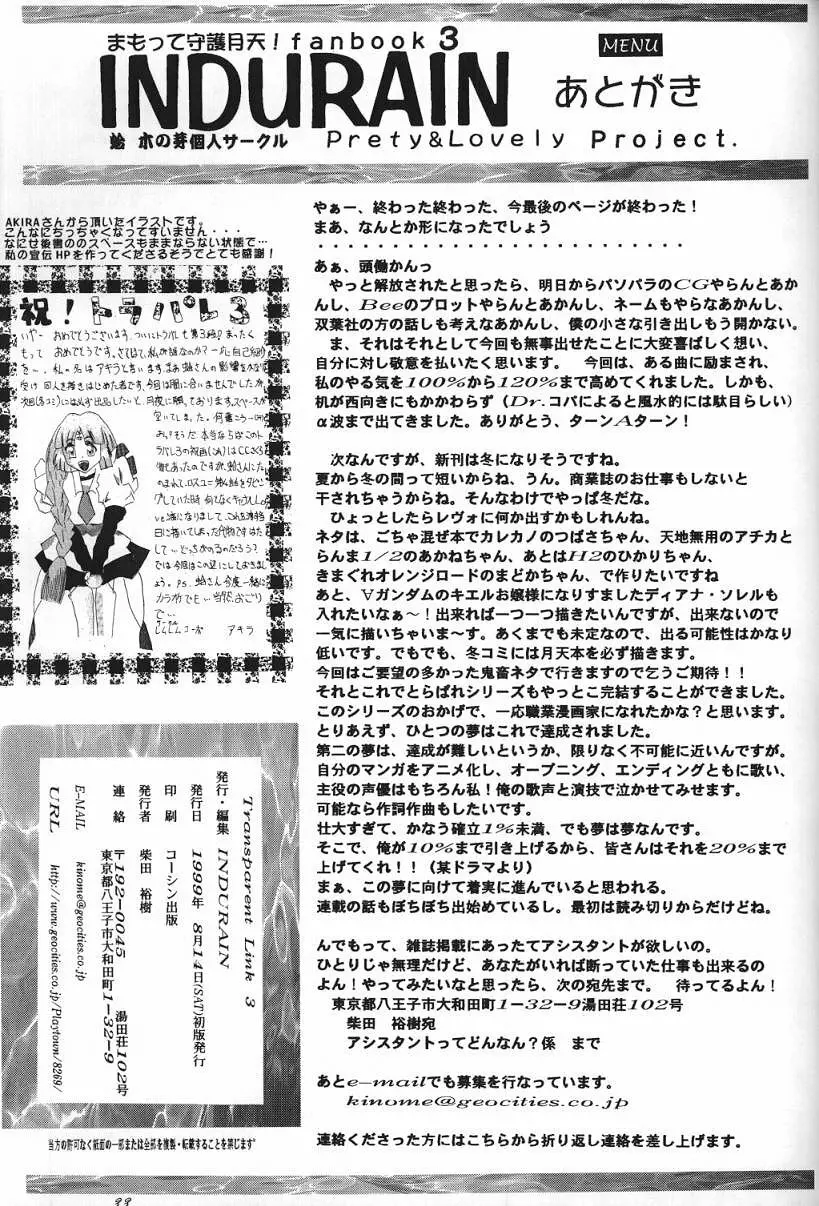 まもって守護月天！fanbook 3
INDURAIN
蛤 木の芽個人サークル
MENU
あとがき
Prety&Lovely Project.
AKIRAさんから頂いたイラストです。
こんなにちっちゃくなってすいません・・・
なにせ後書ののスペースもままならない状態で…
私の宣伝HPを作ってくださるそうでとても感謝！
祝！トラパレ3
アキラ
やぁー、終わった終わった、今最後のページが終わった！
まあ、なんとか形になったでしょう
・・・・・・・・・・・・・・・・・・・・・・・・・・
あぁ、頭働かんっ
やっと解放されたと思ったら、明日からパソパラのCGやらんとあか
んし、Beeのプロットやらんとあかんし、ネームもやらなあかんし、
双葉社の方の話しも考えなあかんし、僕の小さな引き出しもう開かない。
ま、それはそれとして今回も無事出せたことに大変喜ばしく想い、
自分に対し敬意を払いたく思います。 今回は、ある曲に励まされ、
私のやる気を100%から120%まで高めてくれました。しかも、
机が西向きにもかかわらず（Dr.コパによると風水的には駄目らしい）
α波まで出てきました。ありがとう、ターンAターン！
次なんですが、新刊は冬になりそうですね。
夏から冬の間って短いからね、うん。商業誌のお仕事もしないと
干されちゃうからね。そんなわけでやっぱ冬だな。
ひょっとしたらレヴォに何か出すかもしれんね。
ネタは、ごちゃ混ぜ本でカレカノのつばさちゃん、天地無用のアチカと
らんま1/2のあかねちゃん、あとはH2のひかりちゃん、
きまぐれオレンジロードのまどかちゃん、で作りたいですね
あと、∀ガンダムのキエルお嬢様になりすましたディアナ・ソレルも
入れたいなぁ～！出来れば一つ一つ描きたいんですが、出来ないので
一気に描いちゃいま～す。あくまでも未定なので、出る可能性はかなり
低いです。でもでも、冬コミには月天本を必ず描きます。
今回はご要望の多かった鬼畜ネタで行きますので乞うご期待！！
それとこれでとらぱれシリーズもやっとこ完結することができました。
このシリーズのおかげで、一応職業漫画家になれたかな？と思います。
とりあえず、ひとつの夢はこれで達成されました。
第二の夢は、達成が難しいというか、限りなく不可能に近いんですが。
自分のマンガをアニメ化し、オープニング、エンディングともに歌い、
主役の声優はもちろん私！俺の歌声と演技で泣かせてみせます。
可能なら作詞作曲もしたいです。
壮大すぎて、かなう確立1%未満、でも夢は夢なんです。
そこで、俺が10%まで引き上げるから、皆さんはそれを20%まで
上げてくれ！！（某ドラマより）
まぁ、この夢に向けて着実に進んでいると思われる。
連載の話もぼちぼち出始めているし。最初は読み切りからだけどね。
んでもって、雑誌掲載にあったてアシスタントが欲しいの。
ひとりじゃ無理だけど、あなたがいれば断っていた仕事も出来るの
よん！やってみたいなと思ったら、次の宛先まで。 待ってるよん！
東京都八王子市大和田町1－32－9湯田荘102号
柴田 裕樹宛
アシスタントってどんなん？係 まで
あとe-mailでも募集を行なっています。
kinome@geocities.co.jp
連絡くださった方にはこちらから折り返し連絡を差し上げます。
Transparent Link 3
発行・編集 INDURAIN
発行日 1999年 8月14日(SAT)初版発行
印刷 コーシン出版
発行者 柴田 裕樹
連絡 〒192-0045
東京都八王子市大和田町1－32－9
湯田荘102号
E-MAIL kinome@geocities.co.jp
URL http://www.geocities.co.jp/Playtown/8269/
当方の許可なく紙面の一部または全部を複製・転載することを禁じます
33